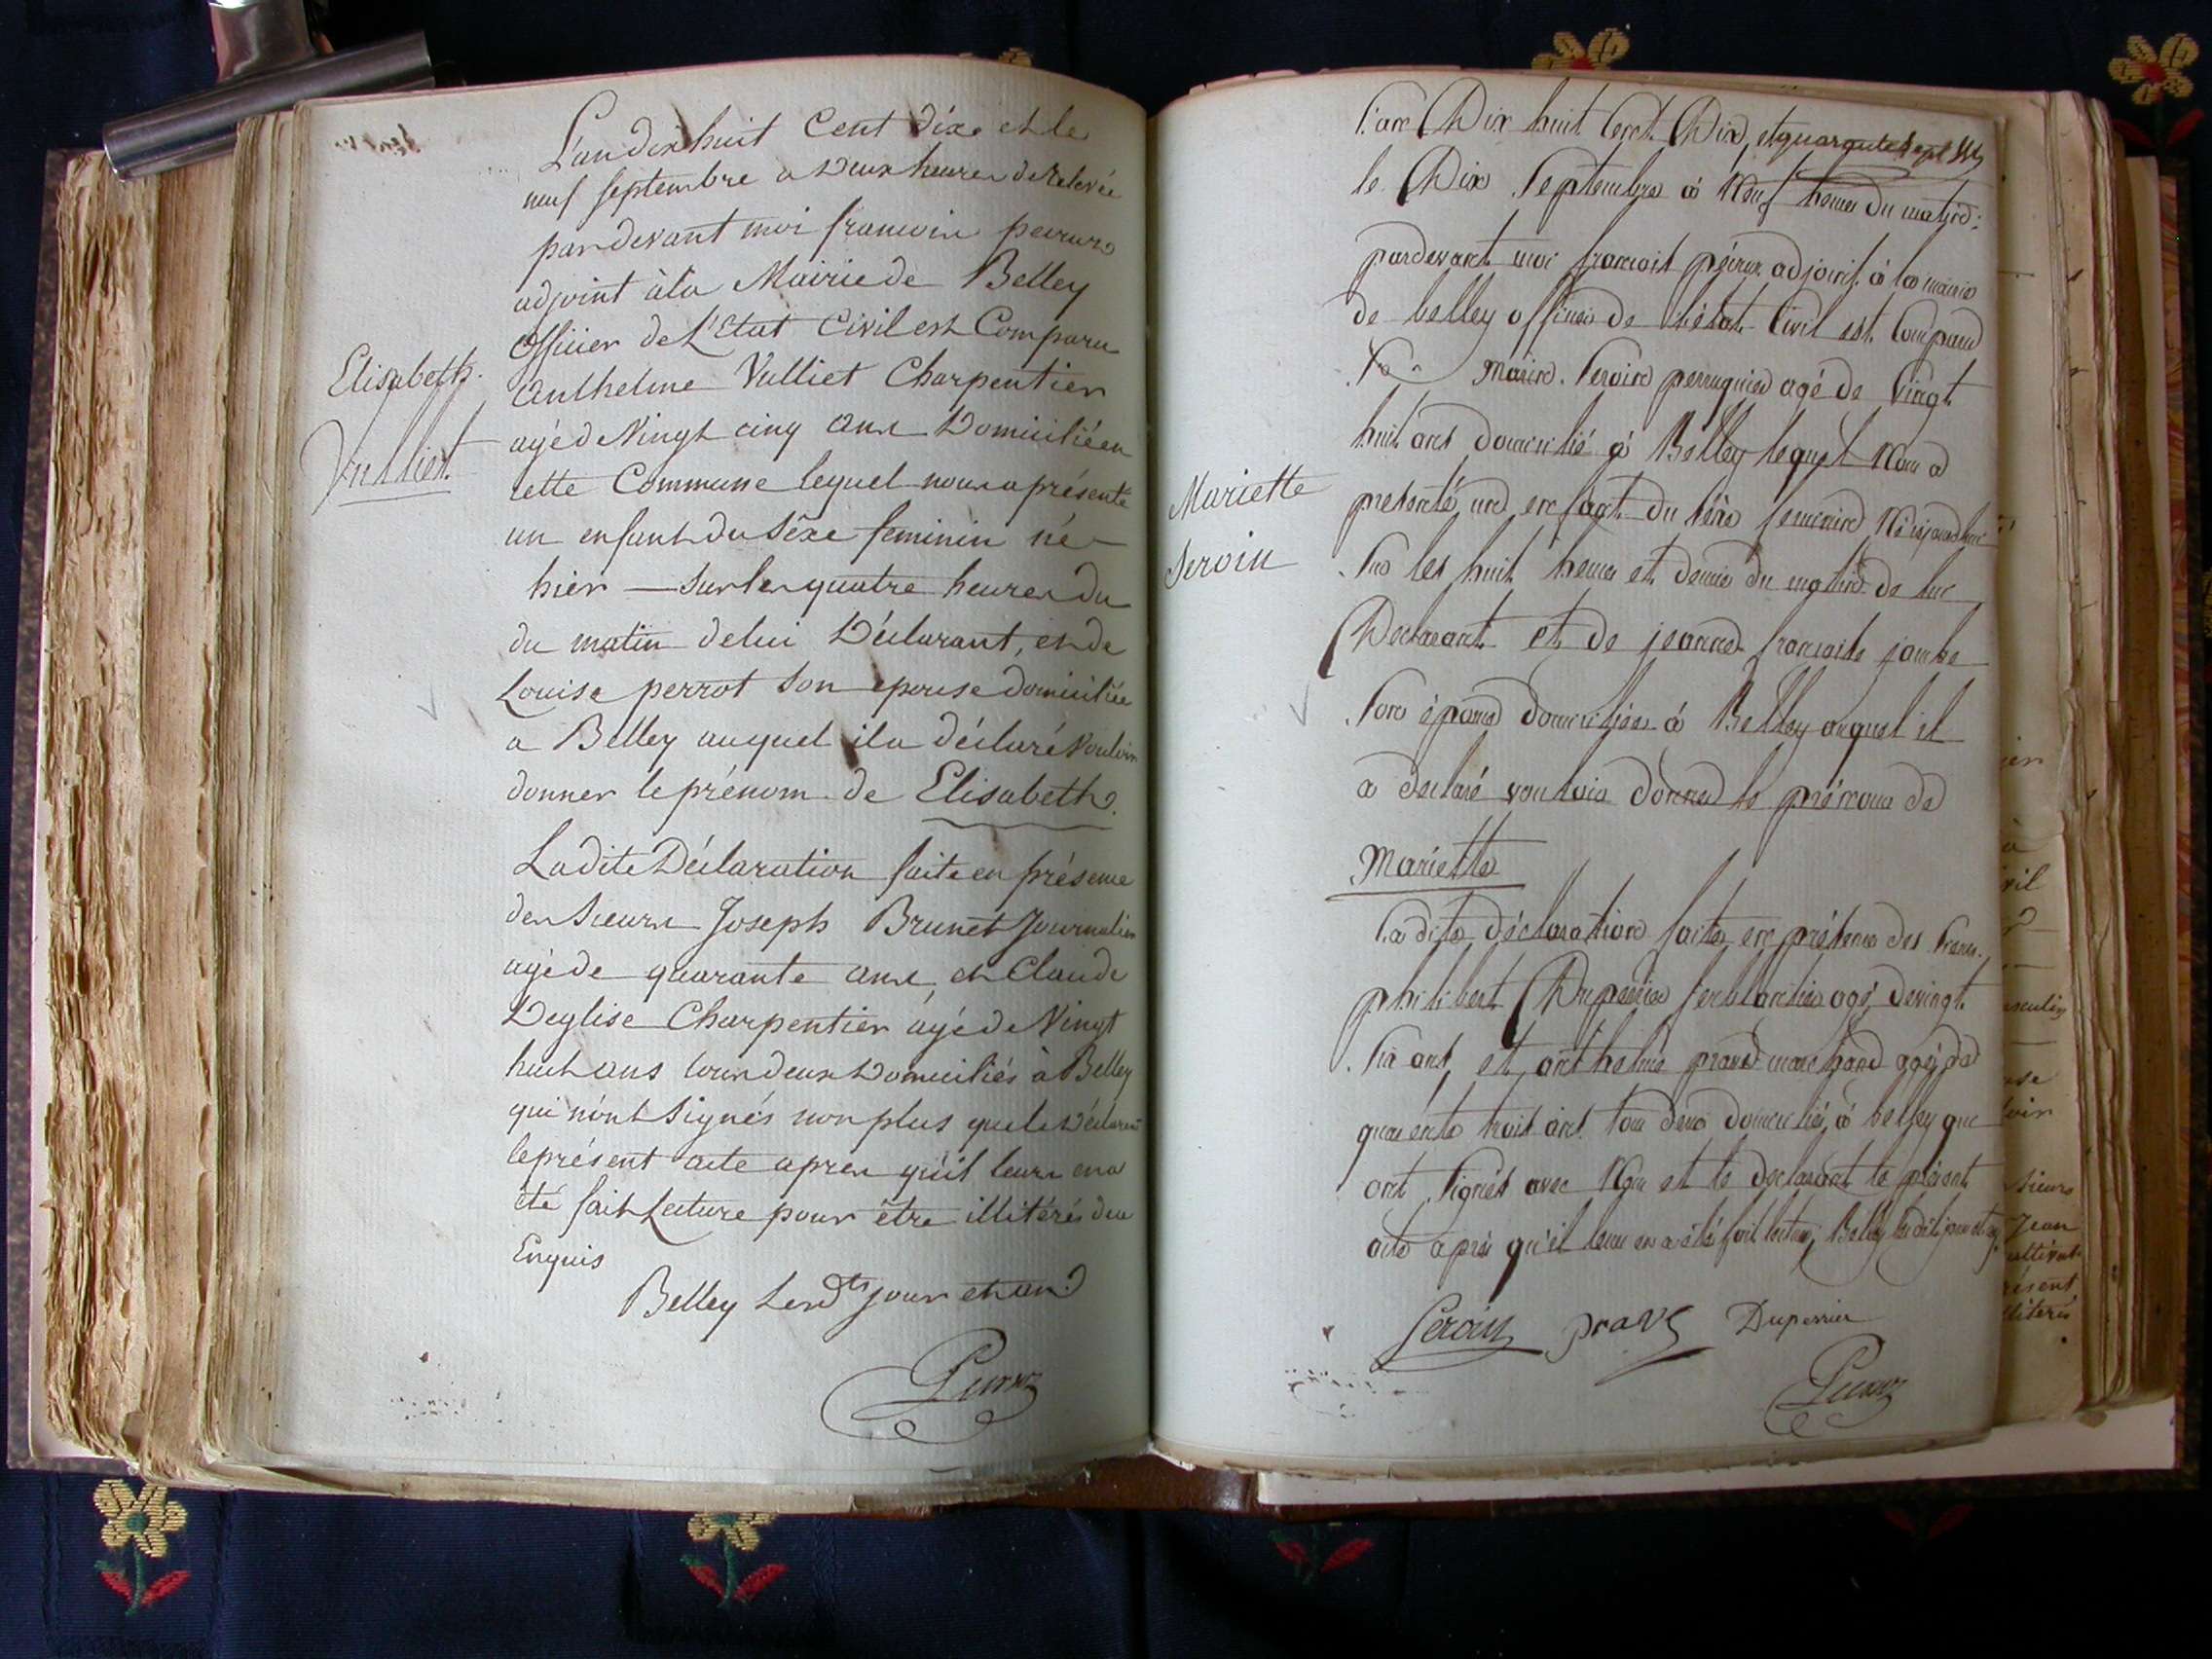 L'an dix huit Cent dixe et le
neuf septembre a Deux heures de Relevée
pardevant moi francoin peurux
adjoint à la Mairie de Belley
officier de L'Etat Civil est Comparu
Anthelme Vulliet Charpentier
agé de Vingt cinq ans Domicilié en
cette Commune lequel nous a présenté
un enfant du sêxe feminin né
hier — sur les quatre heures du
du matin de lui Déclarant, et de
Louise perrot son epouse domiciliée
a Belley auquel il a déclaré vouloir
donner le prénom de Elisabeth.
Elisabeth
Vulliet.
La dite Déclaration faite en présence
des sieurs Joseph Brunet Journalier
agé de quarante ans, et Claude
Deglise Charpentier agé de Vingt
huit ans tous deux Domiciliés à Belley
qui n'ont signés non plus que le Déclarant
le présent acte apres qu'il leurs en a
été fait Lecture pour être illitérés de ce
Enquis
Belley Les dts jour et an
L'an Dix huit Cent Dix, et
le Dix Septembre à Neuf heures du matin
pardevant moi francois peurux adjoint à la mairie
de belley officier de l'état Civil est Comparu
Marin Seroin perruquier agé de Vingt
huit ans domicilié à Belley lequel Nous a
presenté un enfant du sèxe feminin Né aujourdhui
sur les huit heures et demie du matin de lui
Declarant et de jeanne francoise jambe
son épouse domiciliée à Belley auquel il
a declaré vouloir donner le prénom de
Mariette
Mariette
Seroin
La dite déclaration faite en présence des sieurs
philibert Duperrier ferblantier agé de vingt
six ans, et anthelme prave marchand agé de
quarente trois ans tous deux domiciliés à belley qui
ont signés avec Nous et le declarant le présent
acte après qu'il leurs en a été fait lecture, Belley les dits jour et an
Seroin prave Duperrier